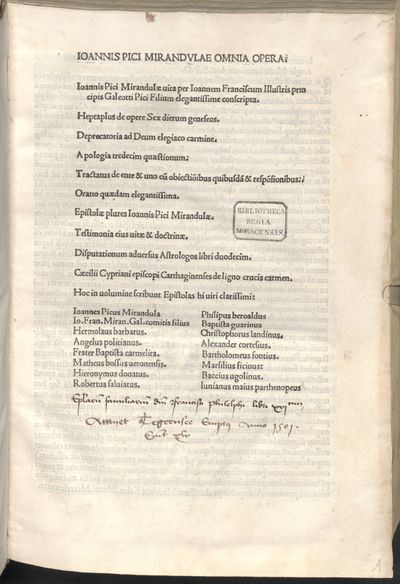 IOANNIS PICI MIRANDVLAE OMNIA OPERA:
Ioannis Pici Mirandulæ uita per Ioannem Franciscum Illustris prin
cipis Galeotti Pici Filium elegantissime conscripta.
Heptaplus de opere Sex dierum geneseos.
Deprecatoria ad Deum elegiaco carmine.
Apologia tredecim quæstionum:
Tractatus de ente & uno cū obiectiōibus quibusdā & respōsionibus:
Oratio quædam elegantissima.
Epistolæ plures Ioannis Pici Mirandulæ.
BIBLIOTHECA
REGIA
MONACENSIS
Testimonia eius uitæ & doctrinæ.
Disputationum aduersus Astrologos libri duodecim.
Cæcilii Cypriani episcopi Carthaginenses de ligno crucis carmen.
Hoc in uolumine scribunt Epistolas hi uiri clarissimi:
Ioannes Picus Mirandula
Io. Fran. Miran. Gal. comitis filius
Hermolaus barbarus.
Angelus politianus.
Frater Baptista carmelita.
Matheus bossus ueronensis.
Hieronymus donatus.
Robertus saluiatus.
Philipus beroaldus
Baptista guarinus
Christophorus landinus.
Alexander cortesius.
Bartholomeus fontius.
Marsilius ficinus:
Baccius ugolinus.
Iunianus maius parthenopeus
familiarium francisci philelphi libri XVI
Attinet Tegernsee Emptus Anno 1501.
1